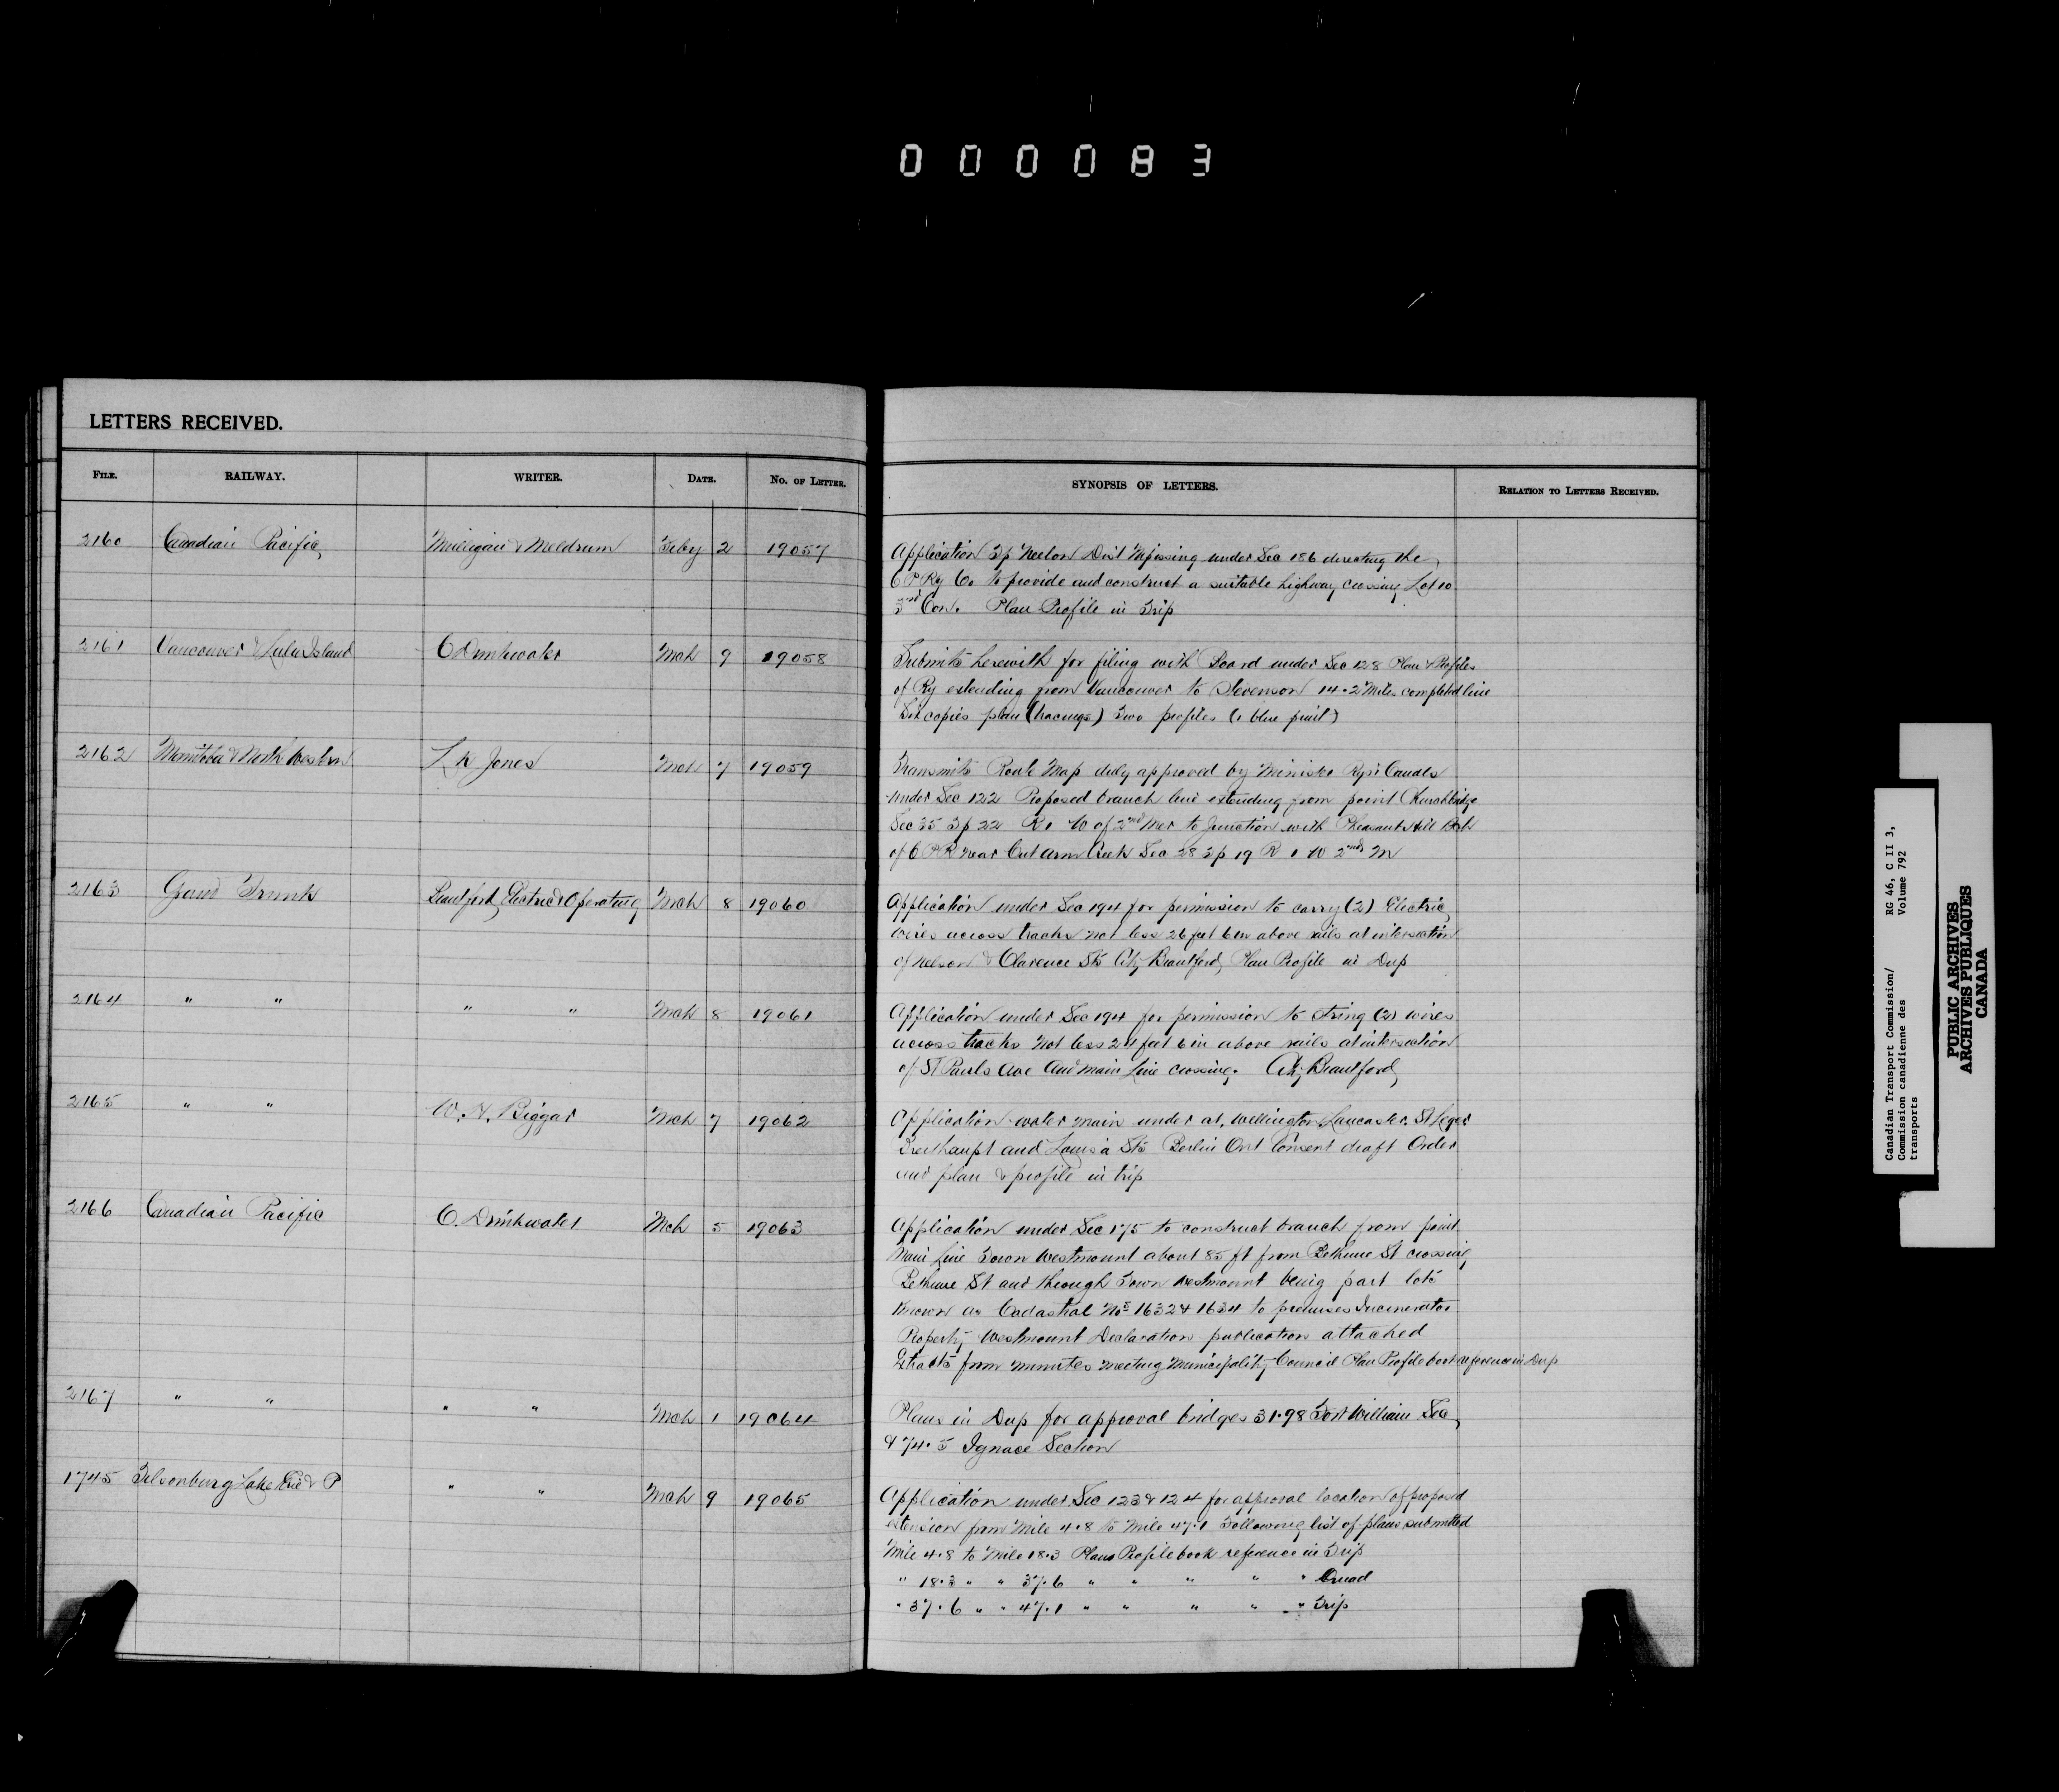 000083
LETTERS RECEIVED.
FILE. RAILWAY. WRITER. DATE. NO. OF LETTER. SYNOPSIS OF LETTERS. RELATION TO LETTERS RECEIVED.
2160 Canadian Pacific Mulligan & Meldrum Feby 2 19057 Application Tp Neelon Dist Nipissing under Sec 186 directing the
C P Ry Co. to provide and construct a suitable highway crossing Lot 10
3rd Con. Plan Profile in Trip
2161 Vancouver & Lulu Island C Drinkwater Mch 9 19058 Submits herewith for filing with Board under Sec 128 Plan & Profiles
of Ry extending from Vancouver to Stevenson 14.2 Miles completed line
Six copies plan (tracings) Two profiles (1 blue print)
2162 Manitoba & North Western L K Jones Mch 7 19059 Transmits Route Map duly approved by Minister Rys & Canals
under Sec 122 Proposed branch line extending from point Churchbridge
Sec 35 Tp 22 R 1 W of 2nd Mer to Junction with Pheasant Hill Bch
of C P R near Cut Arm Creek Sec 28 Tp 19 R 1 W 2nd M
2163 Grand Trunk Brantford Electric & Operating Mch 8 19060 Application under Sec 194 for permission to carry (2) Electric
wires across tracks not less 26 feet 6 in above rails at intersection
of Nelson & Clarence Sts City Brantford Plan Profile in Dup
2164 " " " " Mch 8 19061 Application under Sec 194 for permission to string (2) wires
across tracks not less 24 feet 6 in above rails at intersection
of St Pauls Ave and main Line crossing. City Brantford
2165 " " W. H. Biggar Mch 7 19062 Application water main under at, Wellington Lancaster, St Leger
Breithaupt and Louisa Sts Berlin Ont Consent draft Order
and plan & profile in trip
2166 Canadian Pacific C. Drinkwater Mch 5 19063 Application under Sec 175 to construct branch from point
Main Line Town Westmount about 85 ft from Bethune St crossing
Bethune St and through Town Westmount being part lots
known as Cadastral Nos 1632 & 1634 to premises Incinerator
Property Westmount Declaration publication attached
Extracts from minutes meeting Municipality Council Plan Profile book reference in Dup
2167 " " " " Mch 1 19064 Plans in Dup for approval bridges 31.98 Fort William Sec
& 74.5 Ignace Section
1745 Tilsonburg Lake Erie & P " " Mch 9 19065 Application under Sec 123 & 124 for approval location of proposed
extension from Mile 4.8 to Mile 47.1 Following list of plans submitted
Mile 4.8 to Mile 18.3 Plans Profile book reference in Trip
" 18.3 " " 37.6 " " " " " Quad
" 37.6 " " 47.1 " " " " " Trip
Canadian Transport Commission/ RG 46, C II 3,
Commission canadienne des Volume 792
transports
PUBLIC ARCHIVES
ARCHIVES PUBLIQUES
CANADA